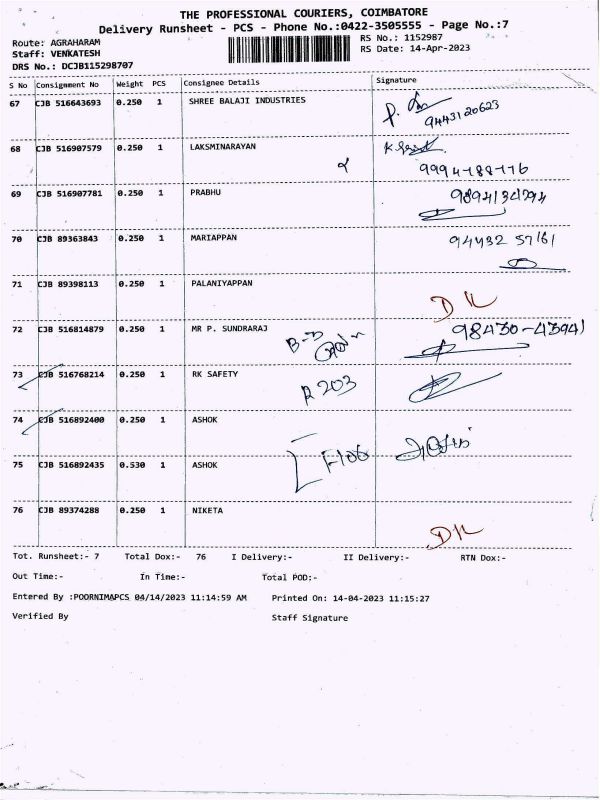 THE PROFESSIONAL COURIERS, COIMBATORE
Delivery Runsheet - PCS - Phone No.:0422-3505555 - Page No.:7
Route: AGRAHARAM
Staff: VENKATESH
DRS No.: DCJB115298707
RS No.: 1152987
RS Date: 14-Apr-2023
S No Consignment No Weight PCS Consignee Details Signature
67 CJB 516643693 0.250 1 SHREE BALAJI INDUSTRIES
9443120623
68 CJB 516907579 0.250 1 LAKSMINARAYAN
9994-188-116
69 CJB 516907781 0.250 1 PRABHU
9894134794
70 CJB 89363843 0.250 1 MARIAPPAN
94432 57161
71 CJB 89398113 0.250 1 PALANIYAPPAN
DL
72 CJB 516814879 0.250 1 MR P. SUNDRARAJ
98430-43941
73 CJB 516768214 0.250 1 RK SAFETY
R 203
74 CJB 516892400 0.250 1 ASHOK
F106
75 CJB 516892435 0.530 1 ASHOK
76 CJB 89374288 0.250 1 NIKETA
DL
Tot. Runsheet:- 7 Total Dox:- 76 I Delivery:- II Delivery:- RTN Dox:-
Out Time:- In Time:- Total POD:-
Entered By :POORNIMAPCS 04/14/2023 11:14:59 AM Printed On: 14-04-2023 11:15:27
Verified By Staff Signature